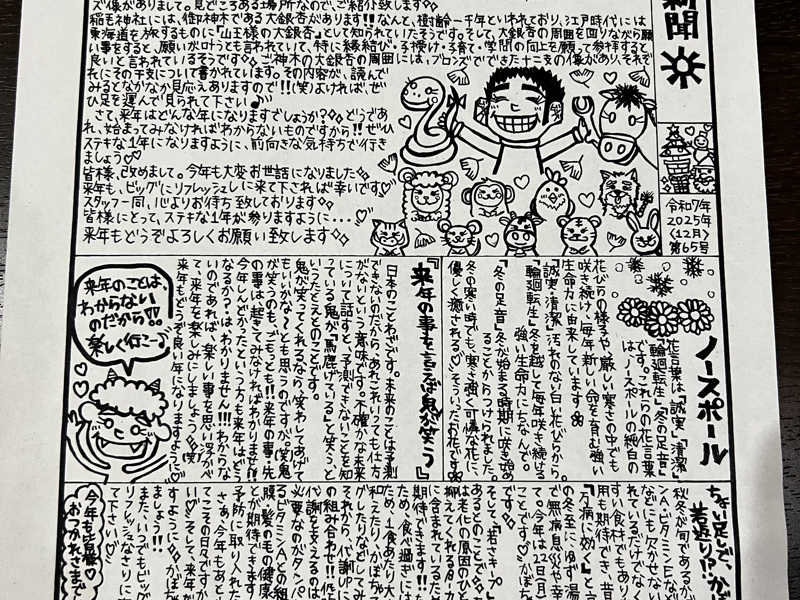 ズ像がありまして。見どころある場所なので、ご紹介致します!
稲毛神社には、御神木である大銀杏があります!!なんと、樹齢一千年といわれており、江戸時代には
東海道を旅するものに『山王様の大銀杏』として知られていたそうです。そして、大銀杏の周囲を回りながら願
い事をすると、願いが叶うとも言われていて、特に縁結び・子授け・子育て・学問の向上を願って参拝すると
良いと言われているそうです。ご神木の大銀杏の周囲には、ブロンズでできた十二支の像があり、それぞ
れにその干支について書かれています。その内容が、読んで
みるとなかなか見応えありますので!!(笑)よければ、ぜ
ひ足を運んで見られて下さい♪
さて、来年はどんな年になりますでしょうか?どうであ
れ、始まってみなければわからないものですから!!ぜひ
ステキな1年になりますよう、前向きな気持ちで行き
ましょう♡
皆様、改めまして。今年も大変お世話になりました。
来年も、ビッグにリフレッシュしに来て下されば幸いです。
スタッフ一同、心よりお待ち致しております
皆様にとって、ステキな1年が参りますように...♡
来年もどうぞよろしくお願い致します
新聞
令和7年
2025年
〈12月〉
第65号
ノースポール
花言葉は『誠実』『清潔』
『輪廻転生』『冬の足音』
です。これらの花言葉
は、ノースポールの純白の
花びらの様子や、厳しい寒さの中でも
咲き続け、毎年新しい命を育む強い
生命力に由来しています
『誠実・清潔』汚れのない白い花びらから。
『輪廻転生』冬を越して毎年咲き続ける
強い生命力にちなんで。
『冬の足音』冬が始まる時期に咲き始め
ることからつけられました。
冬の寒い時でも、寒さ強く可憐な花に、
優しく癒される♡そういったお花です
『来年の事を言えば鬼が笑う』
日本のことわざです。未来のことは予測
できないのだから、あれこれいっても仕方
がないという意味です。不確かな未来
について話すと、予測できないことを知
っている鬼が「馬鹿げている」と笑う、と
いったたとえとのことです。
鬼が笑ってくれるなら、笑わしてあげて
もいいかな〜とも思うのですが。(笑)鬼
が笑うのも、ごもっとも!!来年の事・先
の事は起きてみなければわかりません!!
今年しんどかったという方も来年はどう
なるか?はわかりません!!!わからな
いのであれば、楽しい事を思い浮かべ
て、来年を楽しみにしましょう(笑)
来年もどうぞ良い年になりますように♡
来年のことは、
わからない
のだから!!
楽しく行こ〜♪
ちょい足しで、かぼ
若返り!?
秋冬が旬であるかぼ
ンA・ビタミンE
などにも欠かせない
れているだけでなく
すい食材でもあり
用も期待でき、昔
「万病に効く」と言
の冬至に、ゆず湯
で無病息災や幸
て。今年は22日(月)
ことです♡かぼち
です
そして、『若さキープ』
あるとのことで
は老化の原因と
抑えてくれるβカロ
に含まれているた
期待できます!!
ため、食べ過ぎには
ため、1食あたり大
和えたり・かぼちゃ
グしたりなどしてみ
それから、代謝UPに
の組み合わせ!!
代謝を支えるのは
必要なのがタンパ
るビタミンAとの組
膜・髪の毛の健康
とが期待できます
予防に取り入れた
さあ、今年もあと
てこその日々ですか
い♡そして、来年が
すように♡かぼち
ましょう!!
また、いつでもビッグ
リフレッシュなさりに
て下さい♡
今年も皆様♡
おつかれさまで